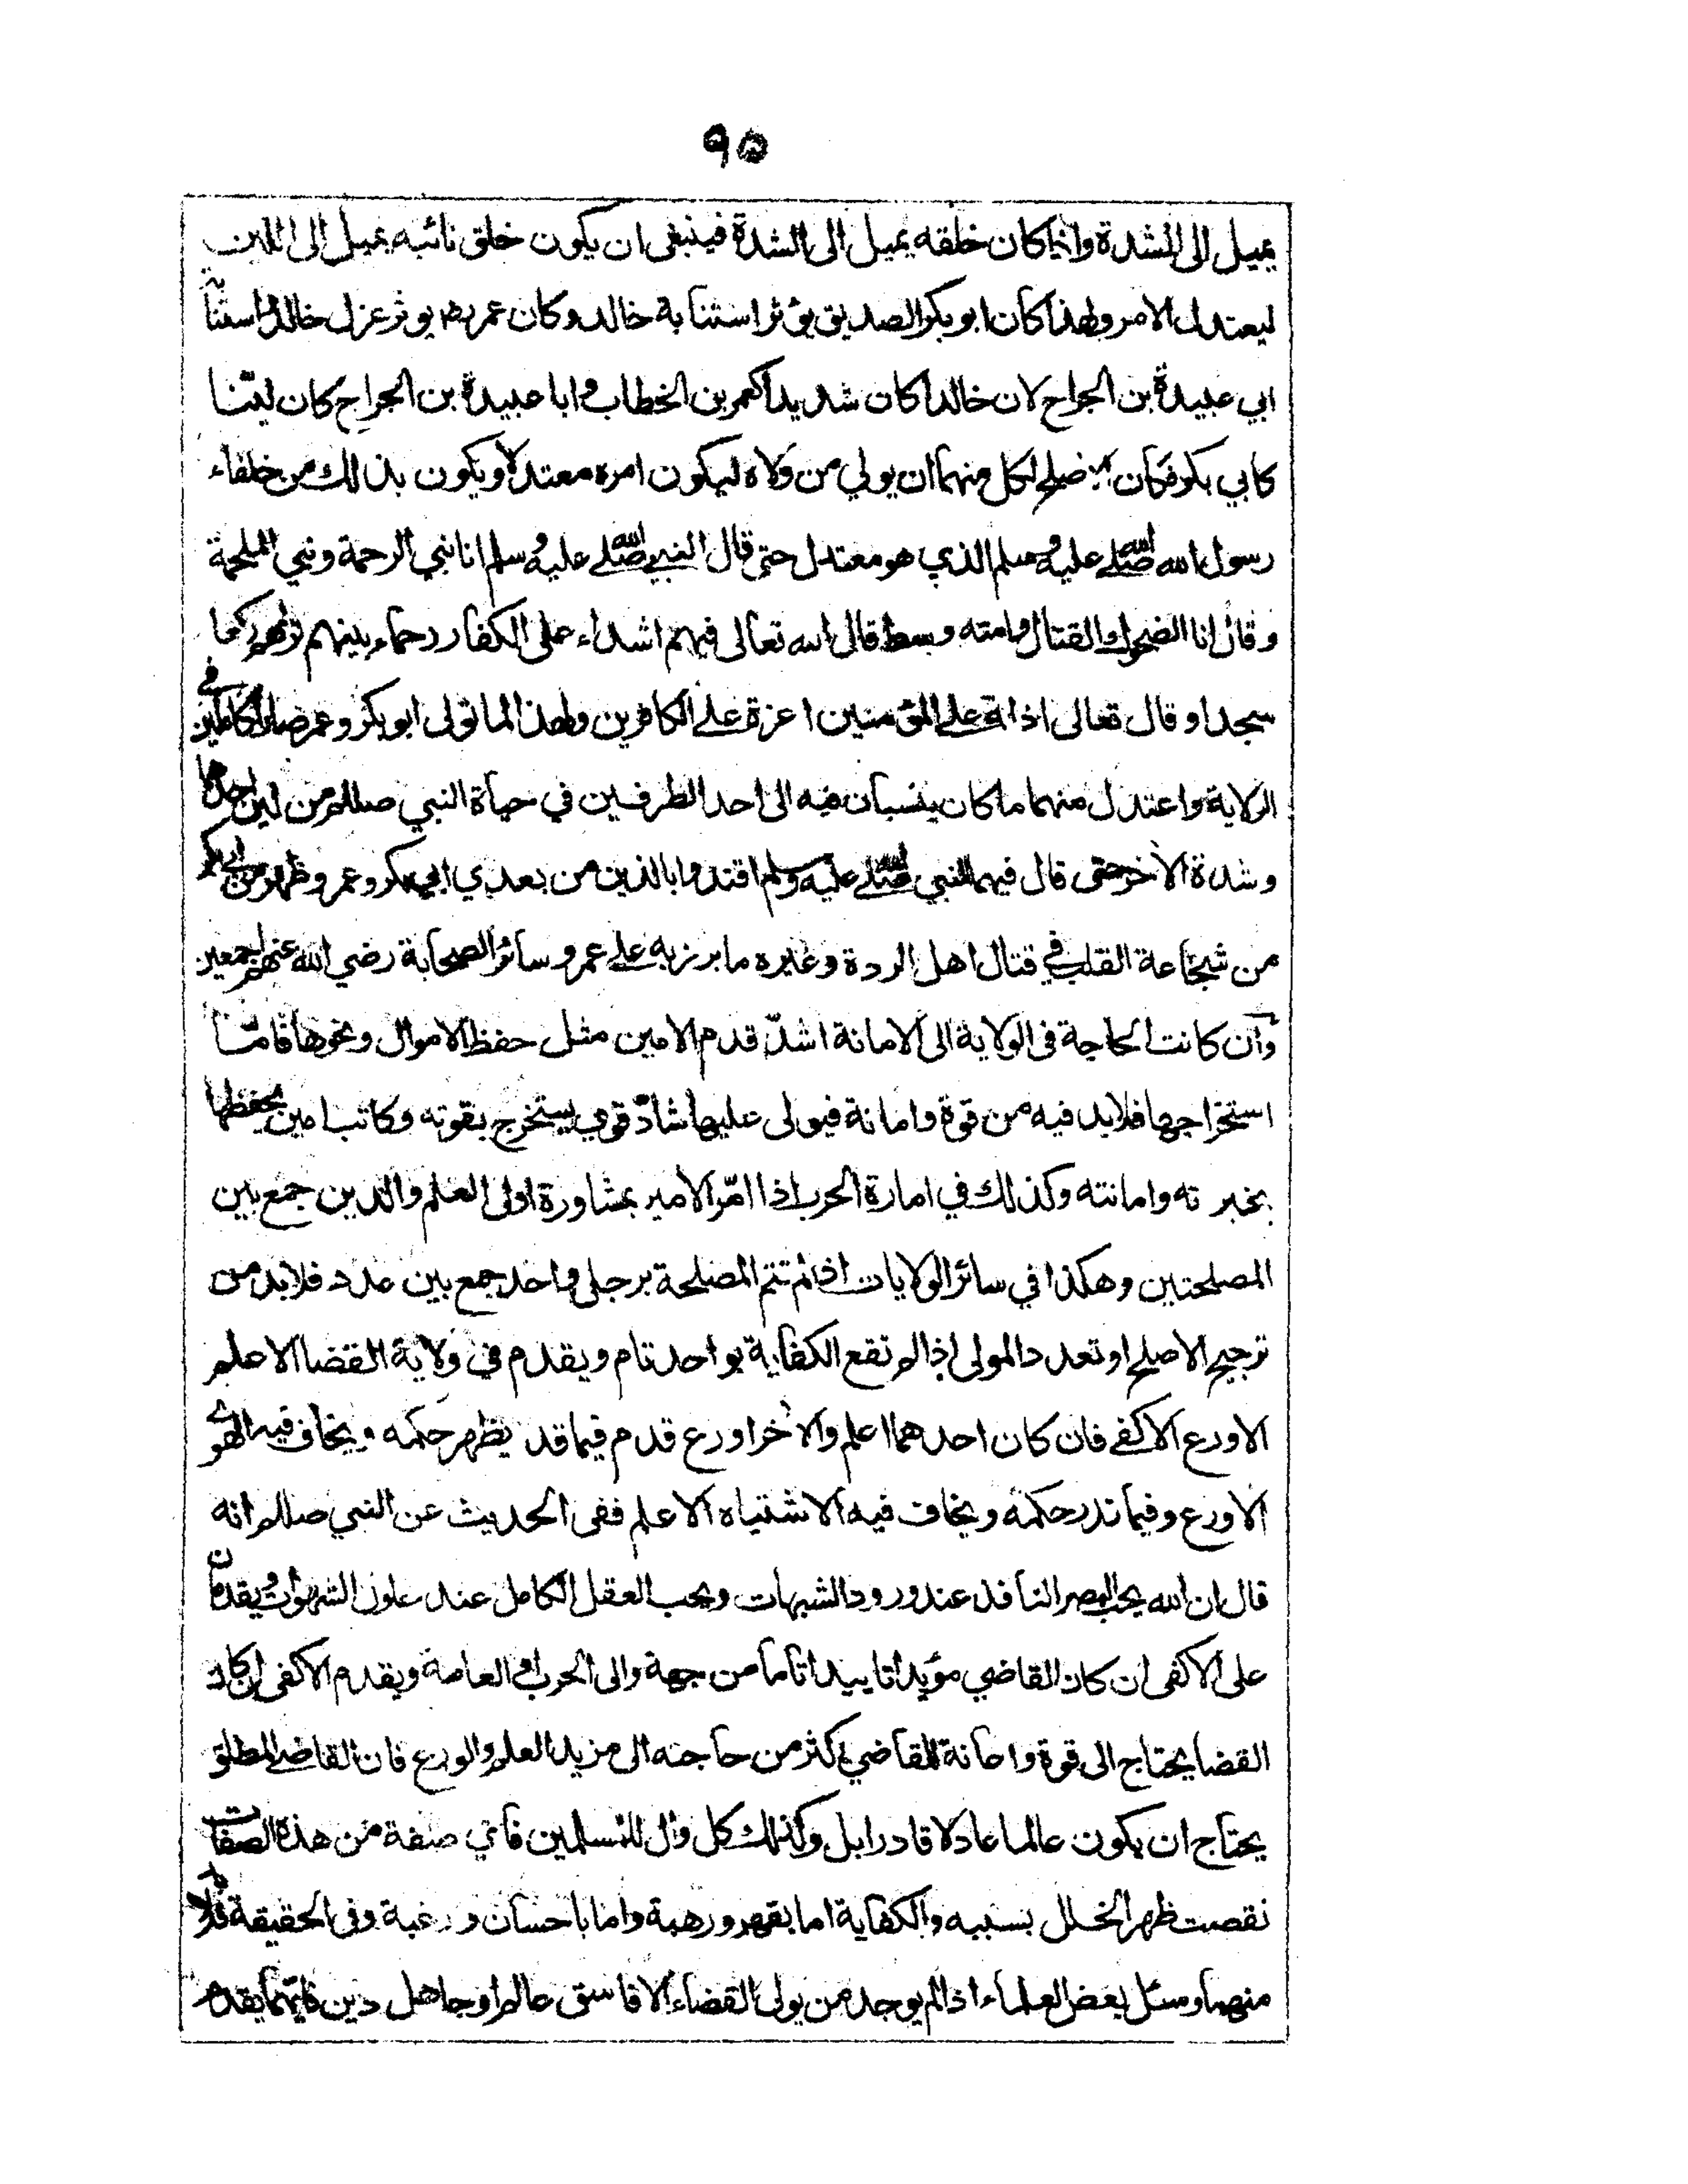 ٩٥
يميل الى الشدة واذا كان خلقه يميل الى الشدة فينبغي ان يكون خلق نائبه يميل الى اللين
ليعتدل الامر ولهذا كان ابو بكر الصديق يؤثر استنابة خالد وكان عمر رض يوثر عزل خالد واستنابة
ابي عبيدة بن الجراح لان خالدا كان شديدا كعمر بن الخطاب و ابا عبيدة بن الجراح كان لينا
كابي بكر فكان الاصلح لكل منهما ان يولي من ولاه ليكون امره معتدلا ويكون بذلك من خلفاء
رسول الله صلى الله عليه وسلم الذي هو معتدل حتى قال النبي صلى الله عليه وسلم انا نبي الرحمة ونبي الملحمة
وقال انا الضحوك القتال وامته وسط قال الله تعالى فيهم اشداء على الكفار رحماء بينهم تراهم ركعا
سجدا و قال تعالى اذلة على المؤمنين اعزة على الكافرين ولهذا لما تولى ابو بكر وعمر صارا كاملين في
الولاية واعتدل منهما ما كان ينسبان فيه الى احد الطرفين في حياة النبي صللم من لين احدهما
وشدة الآخر حتى قال فيهما النبي صلى الله عليه وسلم اقتدوا بالذين من بعدي ابي بكر وعمر وظهر من ابي بكر
من شجاعة القلب في قتال اهل الردة وغيره ما برز به على عمر و سائر الصحابة رضي الله عنهم اجمعين
وان كانت الحاجة في الولاية الى الامانة اشد قدم الامين مثل حفظ الاموال ونحوها فاما
استخراجها فلا بد فيه من قوة وامانة فيولى عليها شاد قوي يستخرج بقوته وكاتب امين يحفظها
بخبرته وامانته وكذلك في امارة الحرب اذا امر الامير بمشاورة اولى العلم والدين جمع بين
المصلحتين وهكذا في سائر الولايات اذا لم تتم المصلحة برجل واحد جمع بين عدد فلا بد من
ترجيح الاصلح او تعدد المولى اذا لم تقع الكفاية بواحد تام ويقدم في ولاية القضا الاعلم
الاورع الاكفى فان كان احدهما اعلم والآخر اورع قدم فيما قد يظهر حكمه ويخاف فيه الهوى
الاورع وفيما ندر حكمه ويخاف فيه الاشتباه الاعلم ففى الحديث عن النبي صللم انه
قال ان الله يحب البصر النافذ عند ورود الشبهات ويحب العقل الكامل عند حلول الشهوات ويقدمان
على الاكفى ان كان القاضي مؤيدا تاييدا تاما من جهة والى الحرب او العامة ويقدم الاكفى ان كان
القضا يحتاج الى قوة واعانة للقاضي اكثر من حاجته الى مزيد العلم والورع فان القاضي المطلق
يحتاج ان يكون عالما عادلا قادرا بل وكذلك كل وال للمسلمين فاي صفة من هذه الصفات
نقصت ظهر الخلل بسببه والكفاية اما بقهر ورهبة واما باحسان و رغبة وفى الحقيقة فلا بد
منهما وسئل بعض العلماء اذا لم يوجد من يولى القضاء الا فاسق عالم او جاهل دين فايهما يقدم